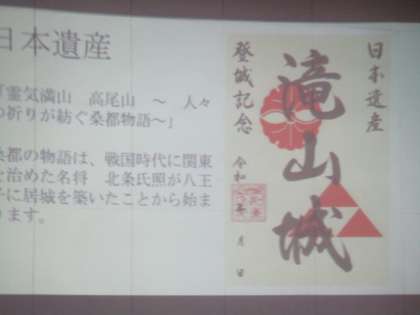 日本遺産
「霊気満山　高尾山　～　人々
の祈りが紡ぐ桑都物語～」
桑都の物語は、戦国時代に関東
を治めた名将　北条氏照が八王
子に居城を築いたことから始ま
ります。
日本遺産
滝山城
登城記念
令和
月　日